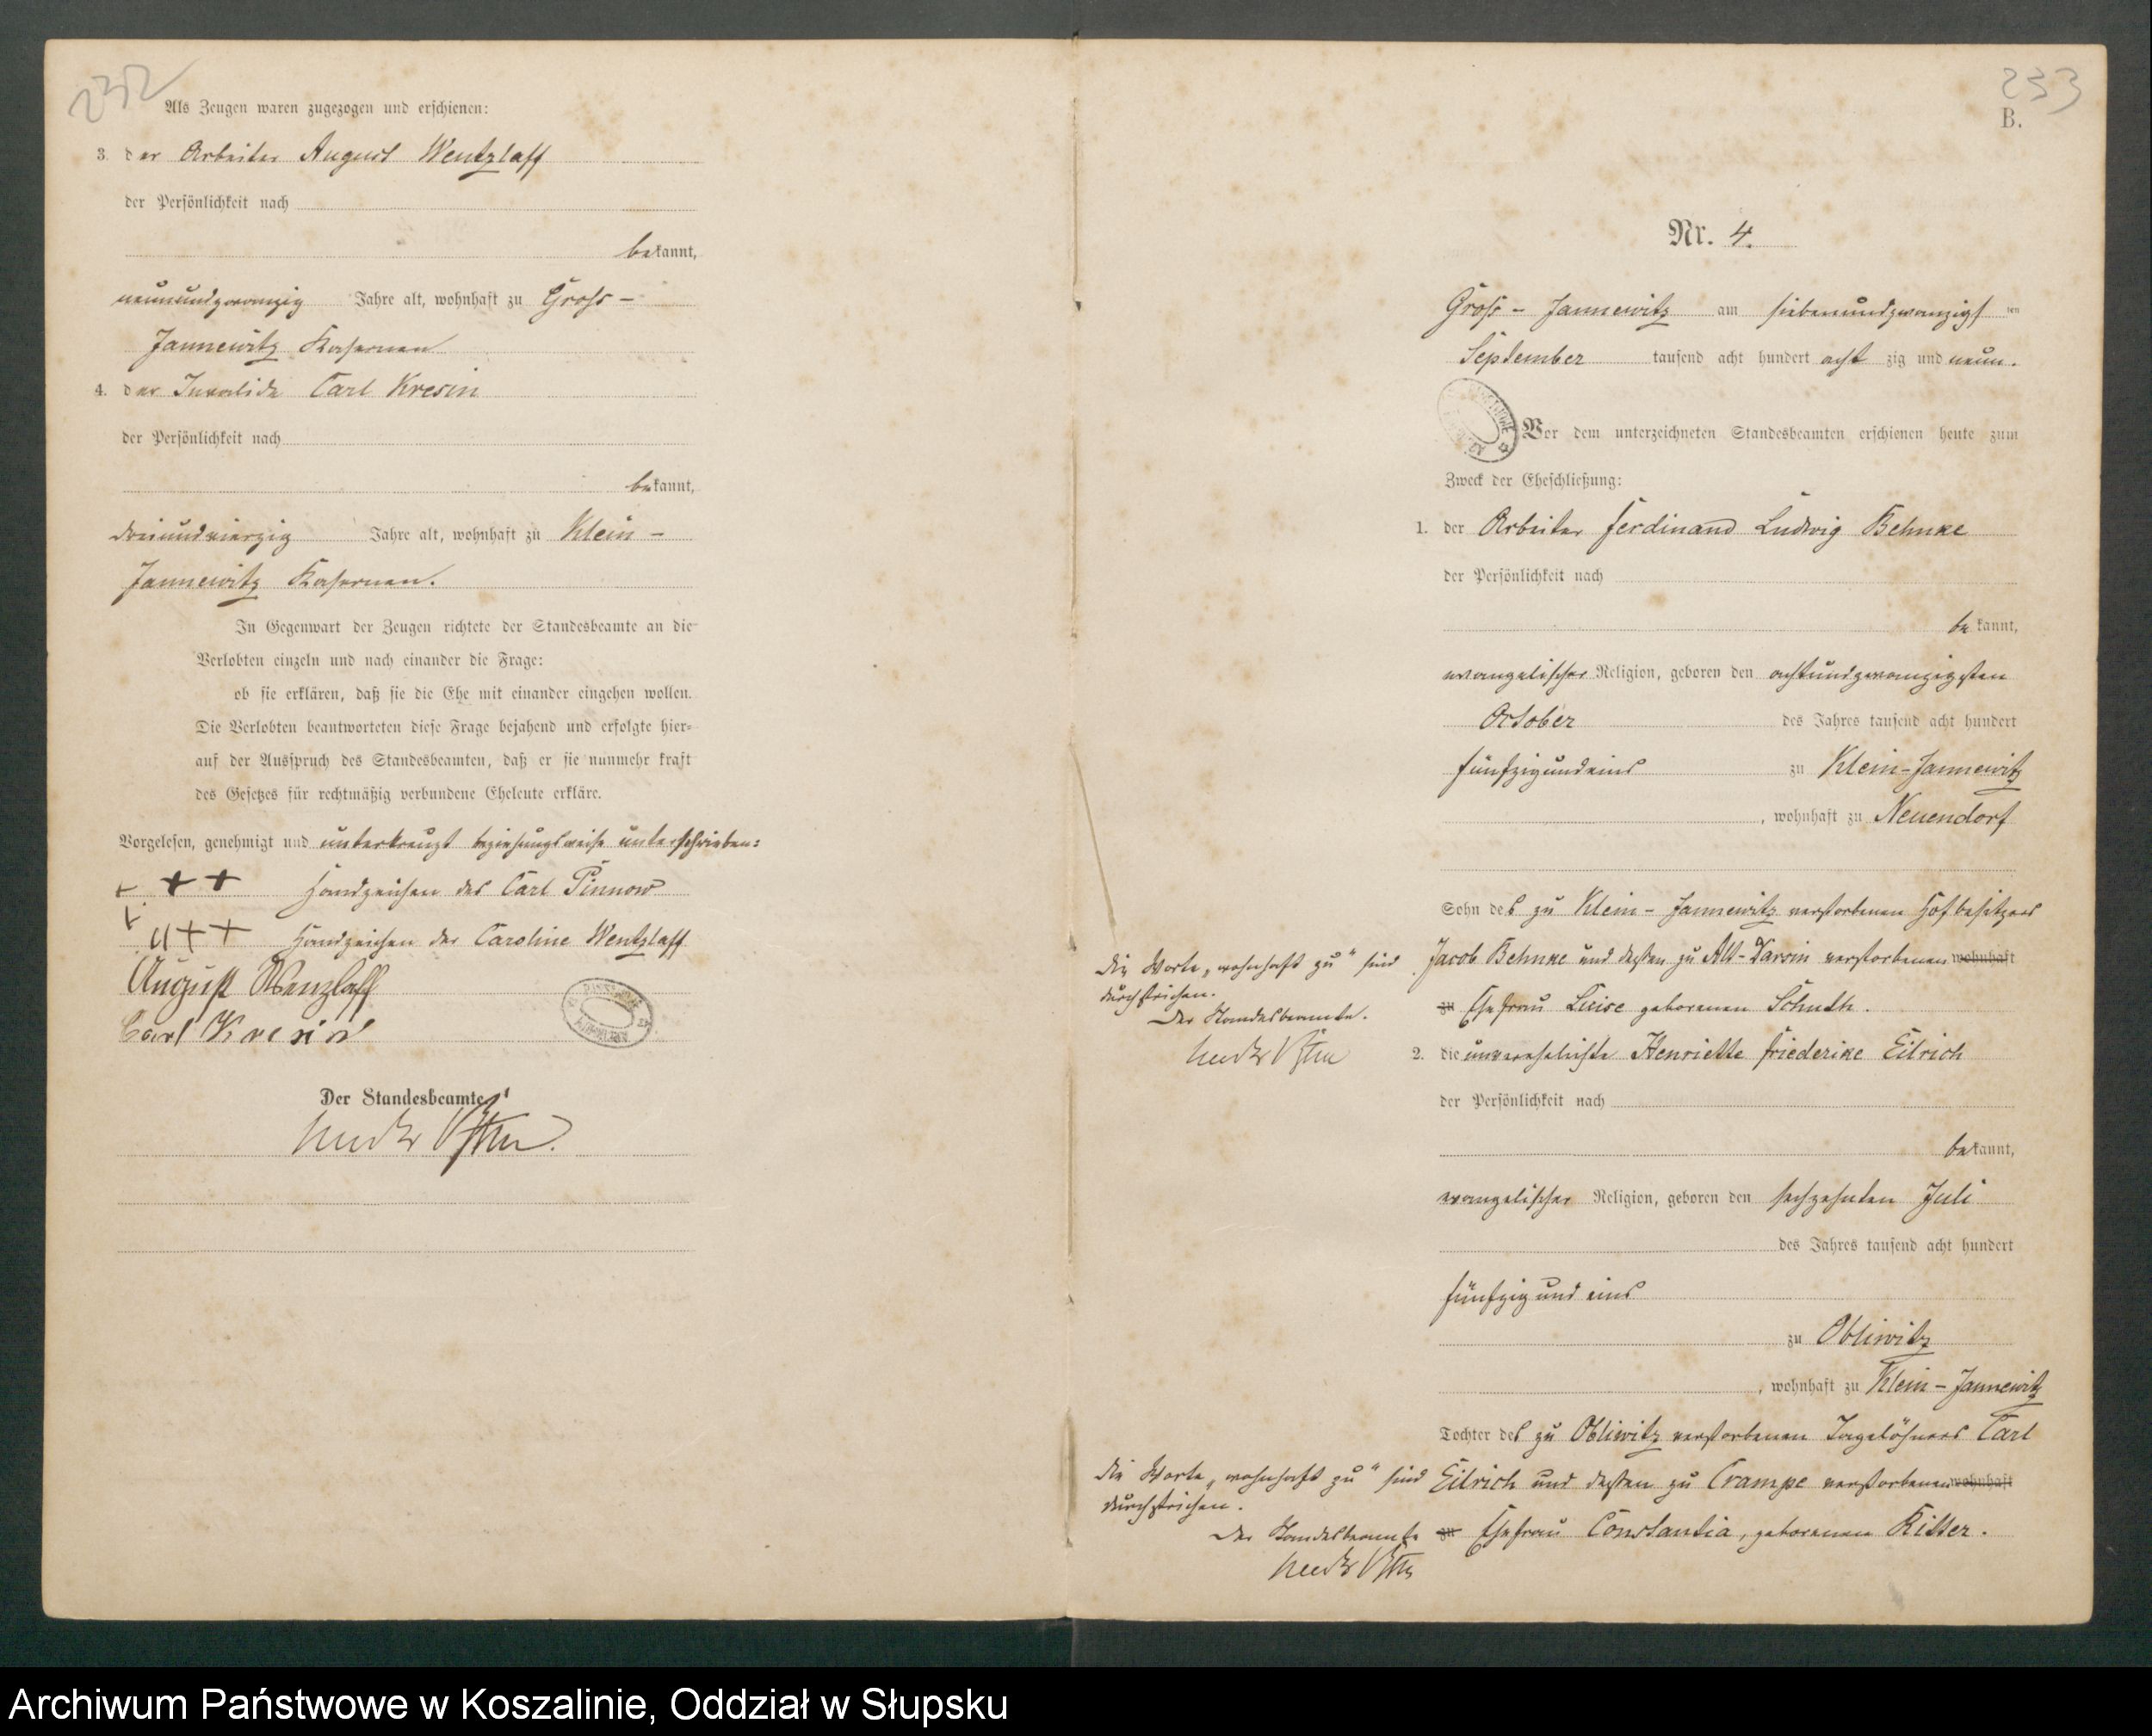 232
Als Zeugen waren zugezogen und erschienen:
3. der Arbeiter August Wentzlaff
der Persönlichkeit nach
bekannt,
neunundzwanzig Jahre alt, wohnhaft zu Gross-
Jannewitz Kasernen
4. der Invalide Carl Kresin
der Persönlichkeit nach
bekannt,
dreiundvierzig Jahre alt, wohnhaft zu Klein-
Jannewitz Kasernen.
In Gegenwart der Zeugen richtete der Standesbeamte an die
Verlobten einzeln und nach einander die Frage:
ob sie erklären, daß sie die Ehe mit einander eingehen wollen.
Die Verlobten beantworteten diese Frage bejahend und erfolgte hier-
auf der Ausspruch des Standesbeamten, daß er sie nunmehr kraft
des Gesetzes für rechtmäßig verbundene Eheleute erkläre.
Vorgelesen, genehmigt und unterkreuzt beziehungsweise unterschrieben:
+ + + Handzeichen des Carl Pinnow
+ + Handzeichen der Caroline Wentzlaff
August Wenzlaff
Carl Kresin
Der Standesbeamte
233
B.
Nr. 4.
Gross-Jannewitz am siebenundzwanzigsten
September tausend acht hundert achtzig und neun.
Vor dem unterzeichneten Standesbeamten erschienen heute zum
Zweck der Eheschließung:
1. der Arbeiter Ferdinand Ludwig Behnke
der Persönlichkeit nach
bekannt,
evangelischer Religion, geboren den achtundzwanzigsten
October des Jahres tausend acht hundert
fünfzigundeins zu Klein-Jannewitz
, wohnhaft zu Neuendorf
Sohn des zu Klein-Jannewitz verstorbenen Hofbesitzers
Jacob Behnke und dessen zu Alt-Varsin verstorbenen wohnhaft
zu Ehefrau Luise geborenen Schuth.
Die Worte „wohnhaft zu“ sind
durchstrichen.
Der Standesbeamte.
2. die unverehelichte Henriette Friederike Eilrich
der Persönlichkeit nach
bekannt,
evangelischer Religion, geboren den sechzehnten Juli
des Jahres tausend acht hundert
fünfzig und eins
zu Obliwitz
, wohnhaft zu Klein-Jannewitz
Tochter des zu Obliwitz verstorbenen Tagelöhners Carl
Eilrich und dessen zu Crampe verstorbenen wohnhaft
zu Ehefrau Constantia, geborenen Ritter.
Die Worte „wohnhaft zu“ sind
durchstrichen.
Der Standesbeamte
Archiwum Państwowe w Koszalinie, Oddział w Słupsku